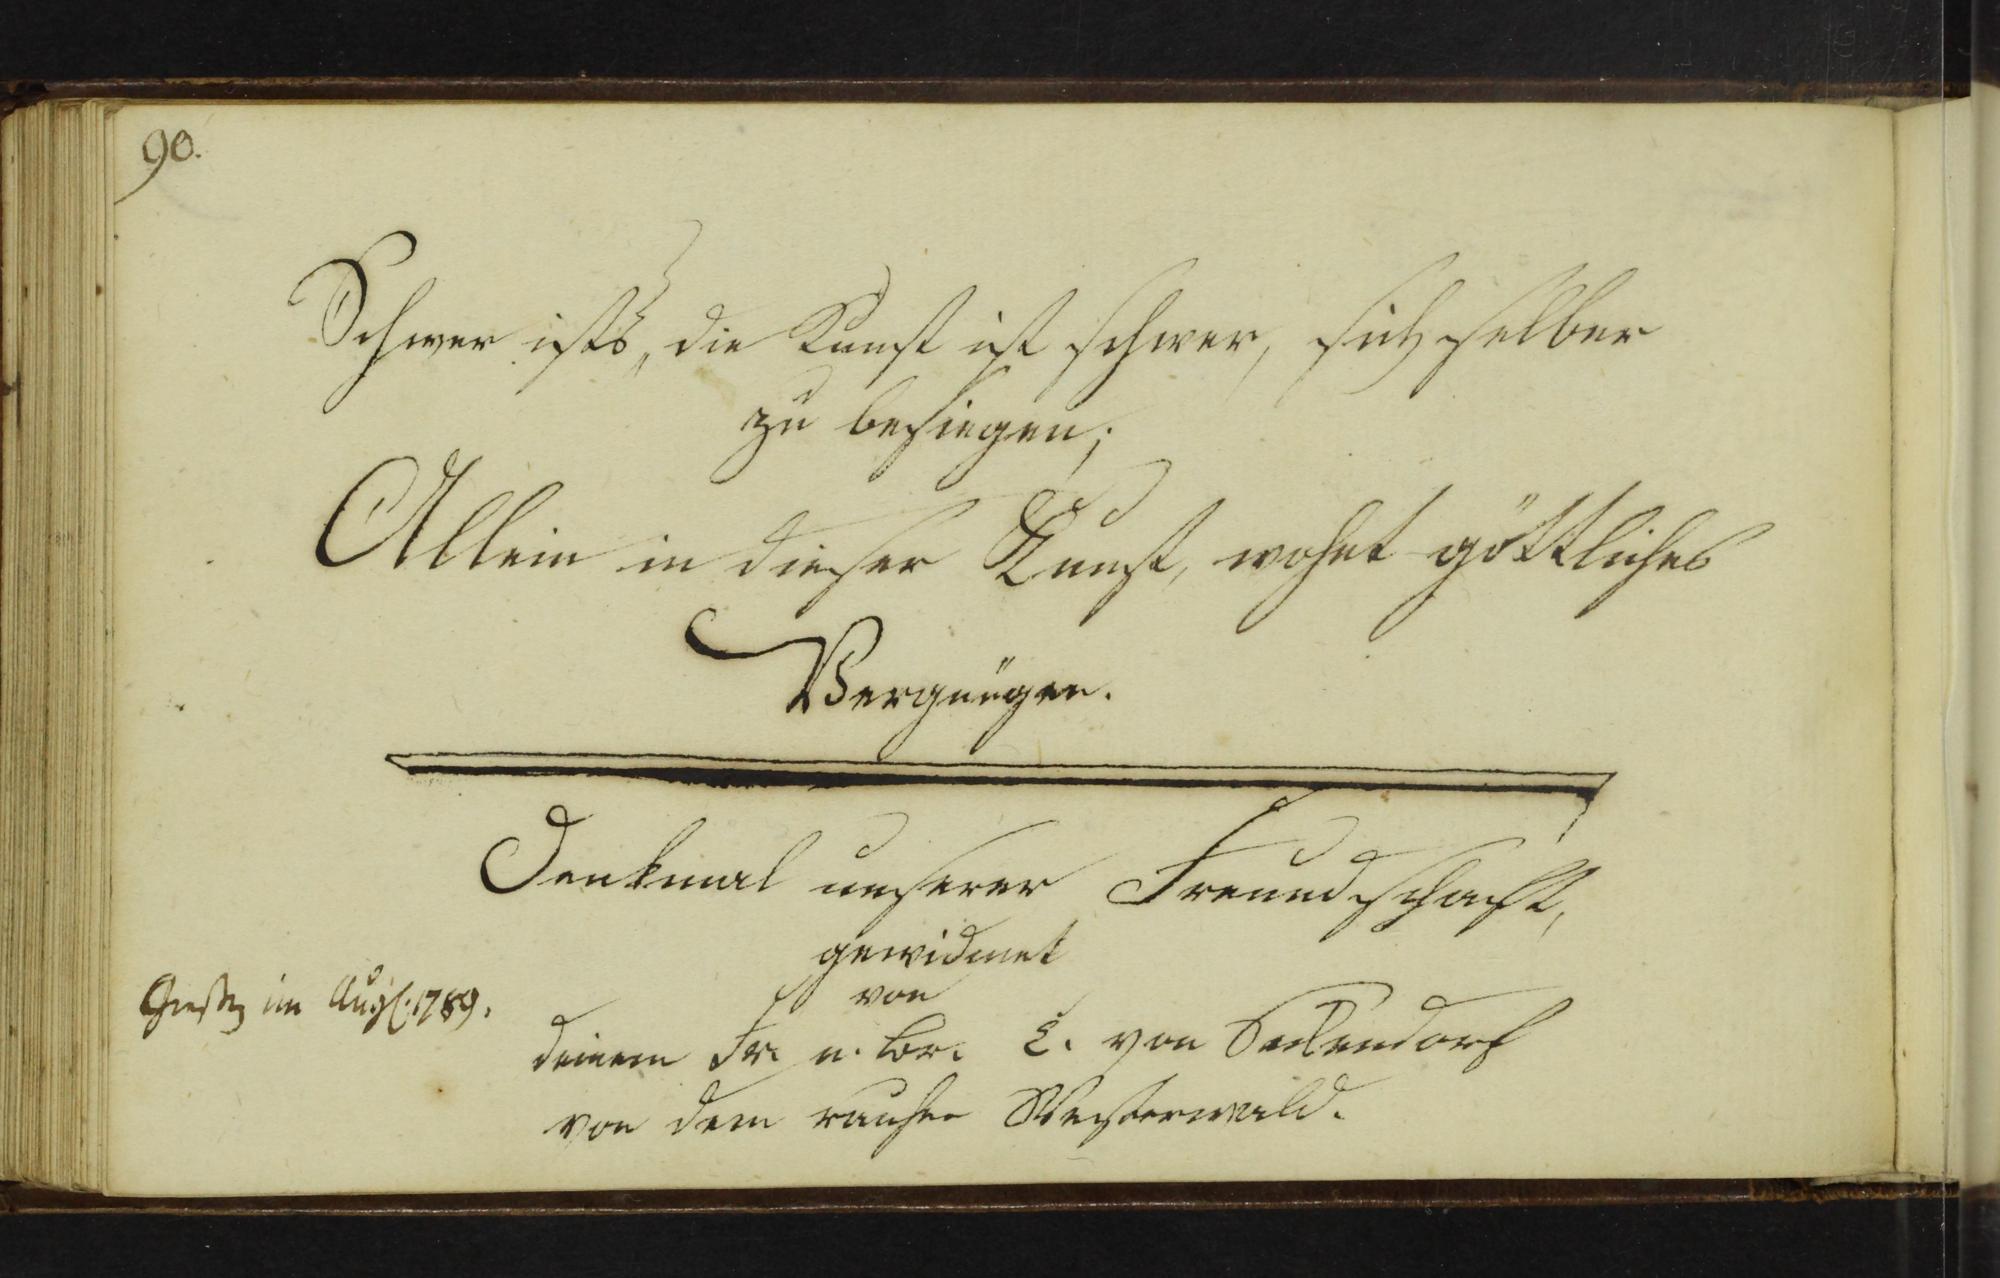 90.
Schwer ists, die Kunst ist schwer, sich selber
zu besiegen;
Allein in dieser Kunst, wohnt göttliches
Vergnügen.
Denkmal unserer Freundschaft,
gewidmet
von
Giesen im Aug. 1789.
deinem Fr. u. Br. L. von Seckendorf
von dem rauhen Westerwald.